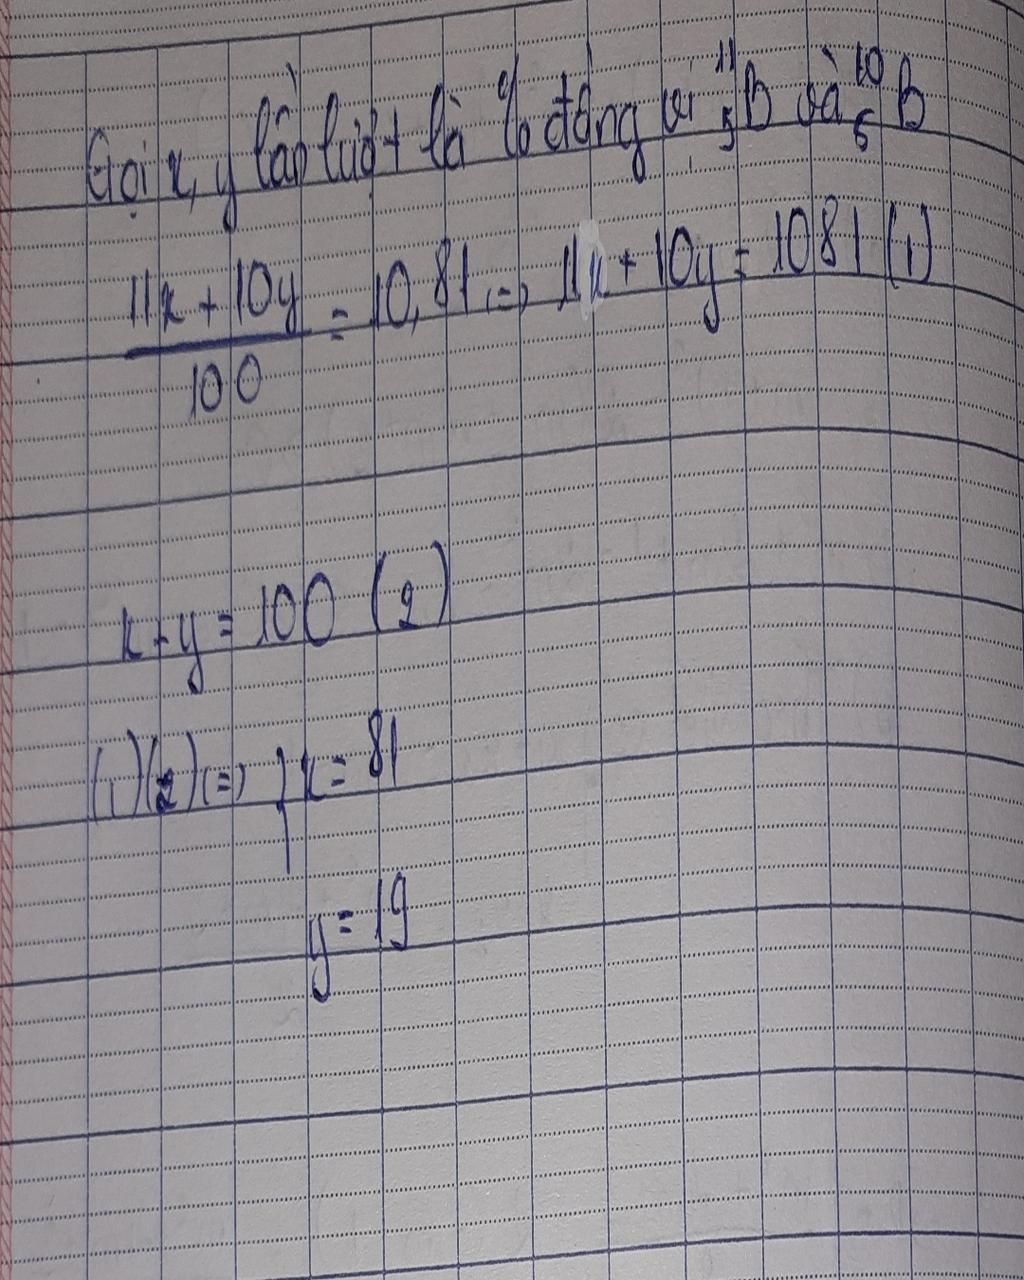 Gọi x, y lần lượt là % đồng vị ¹¹₅B và ¹⁰₅B
(11x + 10y)/100 = 10,81 (=) 11x + 10y = 1081 (1)
x + y = 100 (2)
(1)(2) (=) { x = 81
y = 19